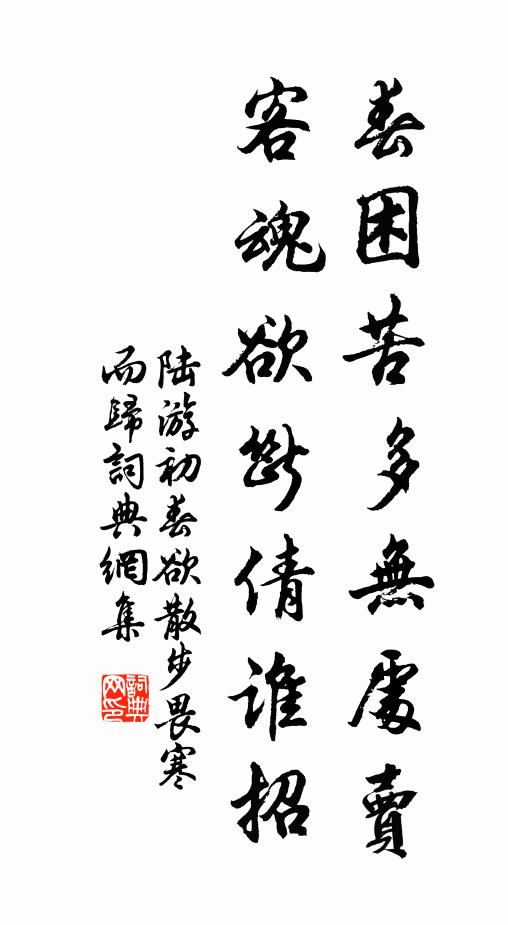 春困苦多無處賣
客魂欲斷倩誰招
陸游初春欲散步畏寒
而歸詞典網集
詞典
网印